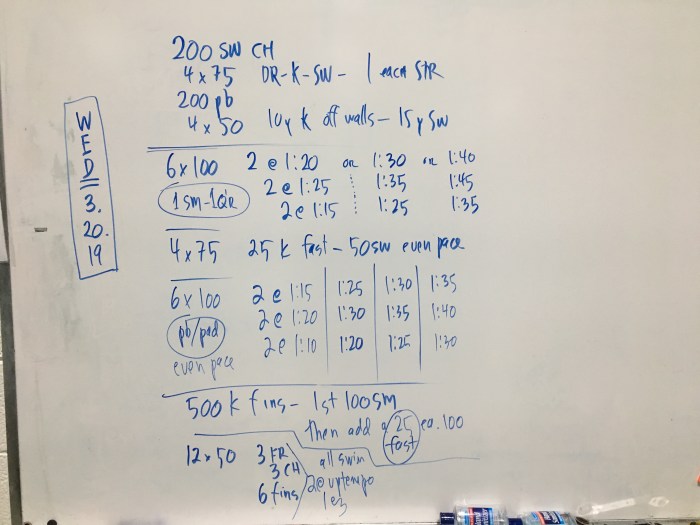 WED
3.
20.
19
200 SW CH
4 x 75 DR-K-SW- 1 each STR
200 pb
4 x 50 10y K off walls - 15y SW
6 x 100 2 @ 1:20 on 1:30 on 1:40
2 @ 1:25 1:35 1:45
1 sm-1QR 2 @ 1:15 1:25 1:35
4 x 75 25 K fast - 50 sw even pace
6 x 100 2 @ 1:15 1:25 1:30 1:35
2 @ 1:20 1:30 1:35 1:40
pb/pad 2 @ 1:10 1:20 1:25 1:30
even pace
500 K fins - 1st 100 sm
then add a 25 fast ea. 100
12 x 50 3 FR all swim
3 CH
6 fins 2@ uptempo
1 ez